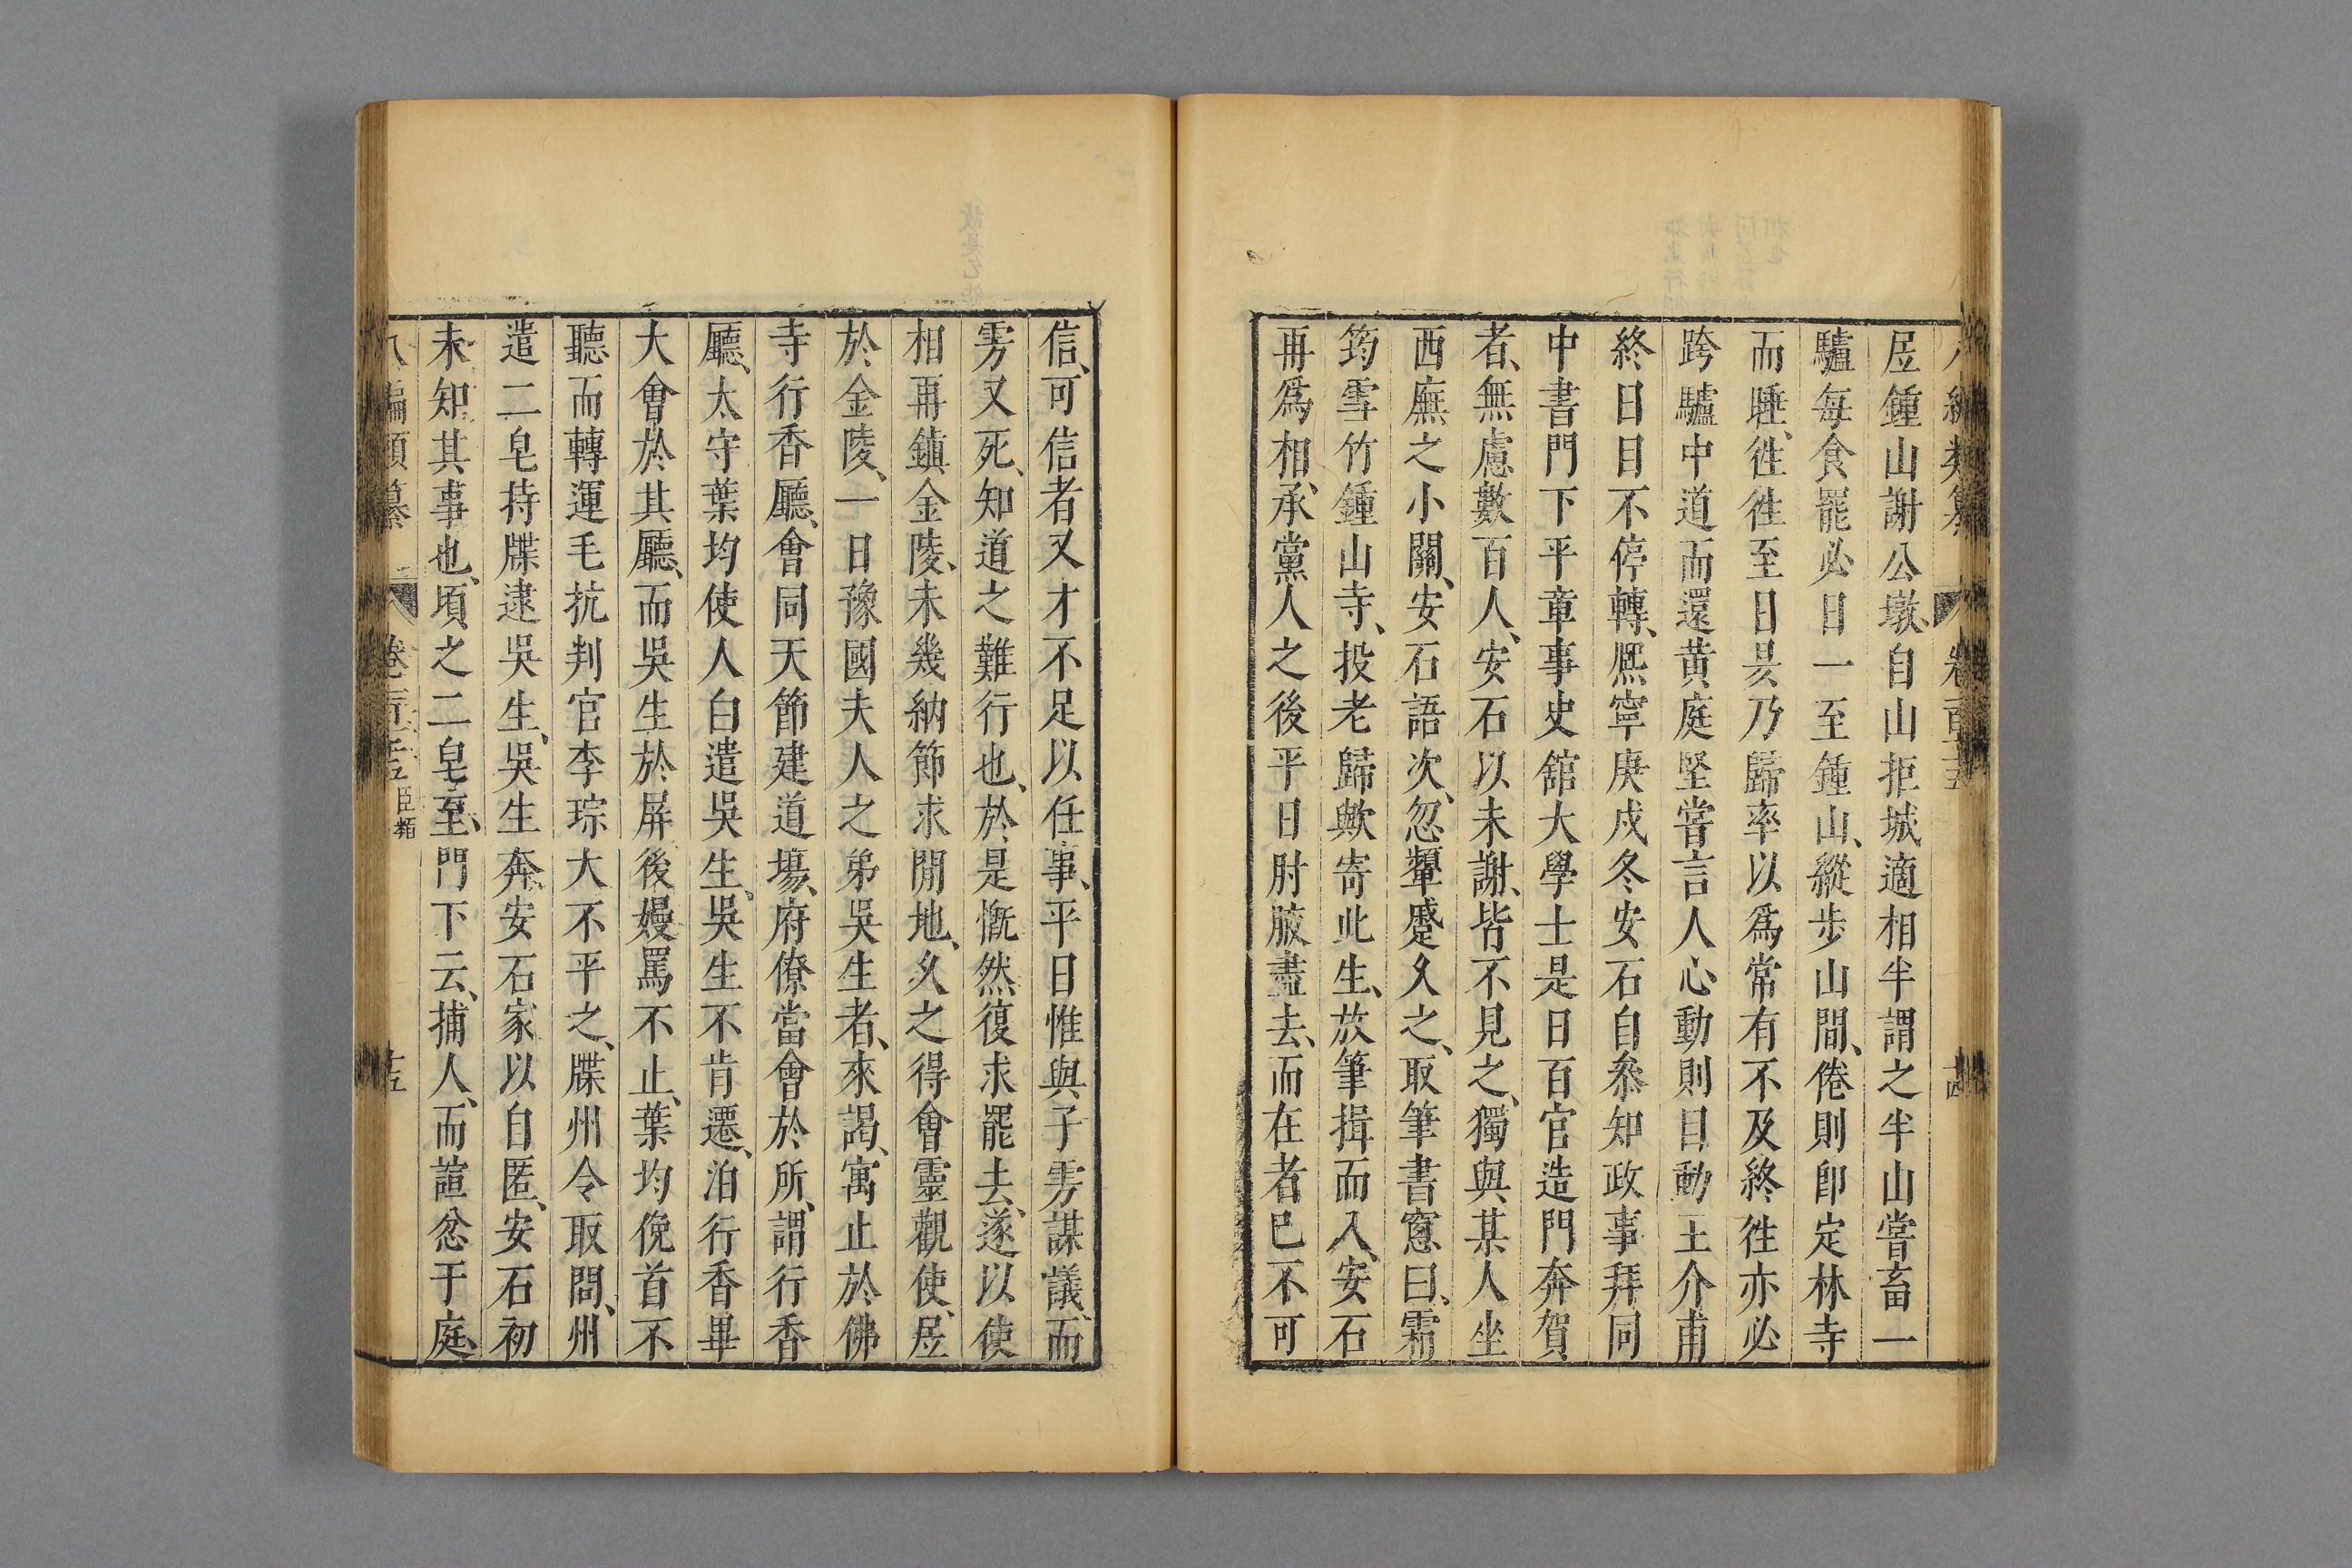 居鍾山謝公墩、自山拒城適相半謂之半山嘗畜一
驢每食罷必日一至鍾山、縱步山間、倦則卽定林寺
而睡、徃徃至日昃乃歸率以爲常有不及終徃亦必
跨驢中道而還黃庭堅嘗言人心動則目動王介甫
終日目不停轉、熈寧庚戍冬安石自叅知政事拜同
中書門下平章事史館大學士是日百官造門奔賀
者、無慮數百人、安石以未謝、皆不見之、獨與某人坐
西廡之小閣、安石語次、忽顰蹙久之、取筆書窻曰、霜
筠雪竹鍾山寺、投老歸歟寄此生、放筆揖而入、安石
再爲相、承黨人之後平日肘腋盡去、而在者已不可
信、可信者又才不足以任事、平日惟與子雱謀議、而
雱又死、知道之難行也、於是慨然復求罷去、遂以使
相再鎮金陵、未幾納節求閒地、久之得會靈觀使、居
於金陵、一日豫國夫人之弟吳生者、來謁、寓止於佛
寺行香廳、會同天節建道塲、府僚當會於所、謂行香
廳、太守葉均使人白遣吳生、吳生不肯遷、洎行香畢
大會於其廳、而吳生於屏後嫚罵不止、葉均俛首不
聽而轉運毛抗判官李琮大不平之、牒州令取問、州
遣二皂持牒逮吳生、吳生奔安石家以自匿、安石初
未知其事也、頃之二皂至、門下云、捕人、而諠忿于庭、
八編類纂 卷 臣類 十五